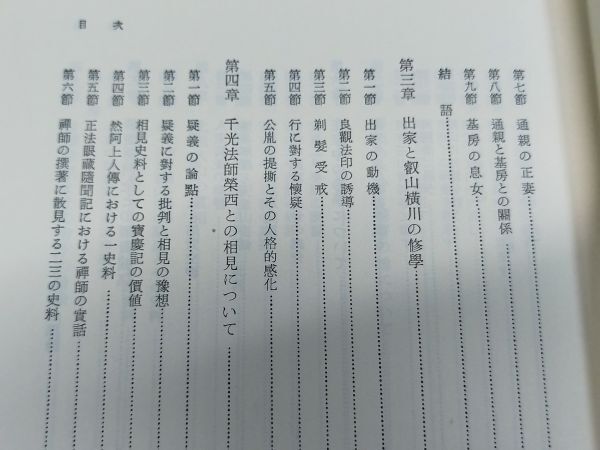 目次
第七節 通親の正妻
第八節 通親と基房との關係
第九節 基房の息女
結語
第三章 出家と叡山橫川の修學
第一節 出家の動機
第二節 良觀法印の誘導
第三節 剃髮受戒
第四節 行に對する懷疑
第五節 公胤の提撕とその人格的感化
第四章 千光法師榮西との相見について
第一節 疑義の論點
第二節 疑義に對する批判と相見の豫想
第三節 相見史料としての寶慶記の價値
第四節 然阿上人傳における一史料
第五節 正法眼藏隨聞記における禪師の實話
第六節 禪師の撰著に散見する二三の史料